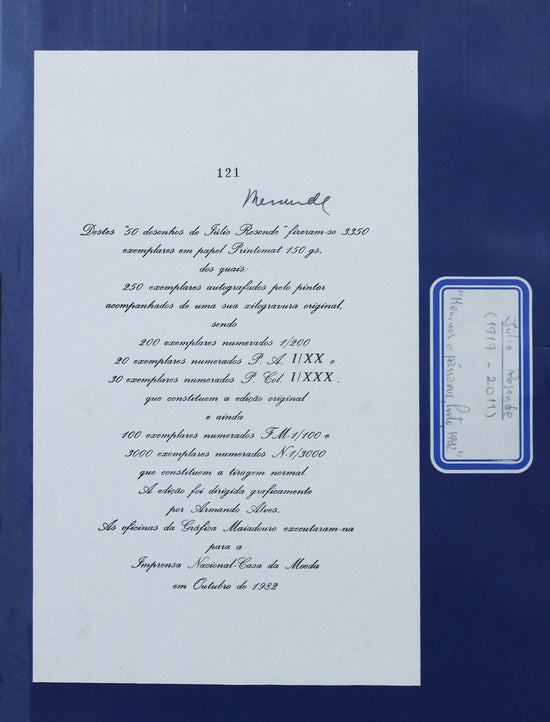 121
Resende
Destes "50 desenhos de Júlio Resende" fizeram-se 3350
exemplares em papel Printomat 150 gs.
dos quais:
250 exemplares autografados pelo pintor
acompanhados de uma sua xilogravura original,
sendo
200 exemplares numerados 1/200
20 exemplares numerados P. A. I/XX e
30 exemplares numerados P. Col. I/XXX.
que constituem a edição original
e ainda
100 exemplares numerados FM-1/100 e
3000 exemplares numerados N-1/3000
que constituem a tiragem normal.
A edição foi dirigida graficamente
por Armando Alves.
As oficinas da Gráfica Maiadouro executaram-na
para a
Imprensa Nacional-Casa da Moeda
em Outubro de 1982
Júlio Resende
(1917 - 2011)
"Meninos e pássaros Porto 1982"